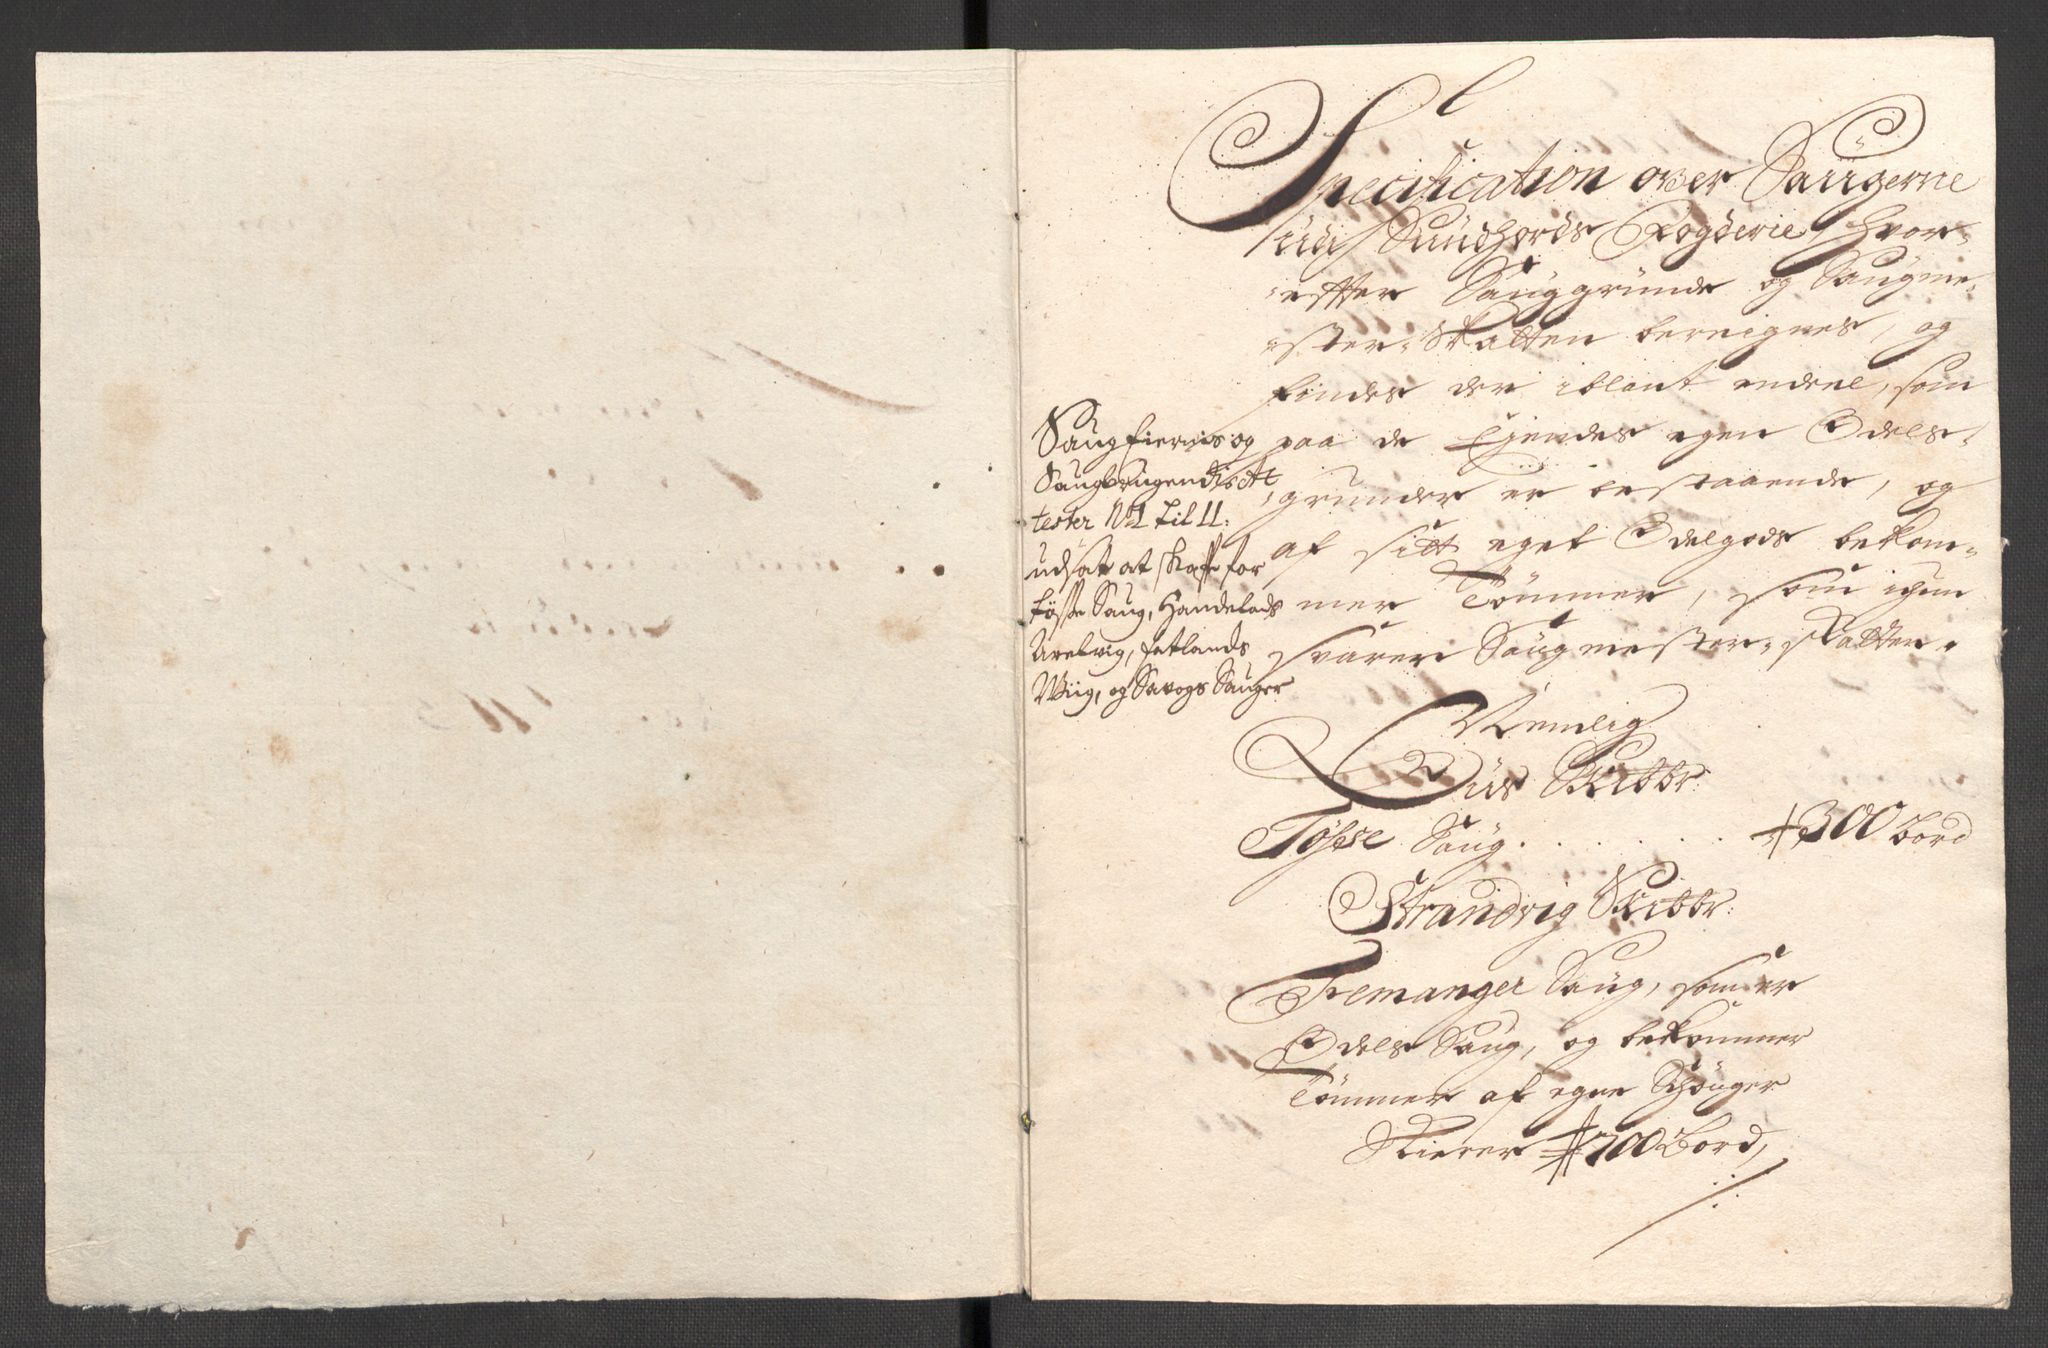 Specification over Saugerne
udj Sundhords Fogderie, hvor-
effter Sauggrunde og Saugme-
ster-Skatten bereignes, og
findes der iblant endeel, som
paa de Eyendes egen Odels-
grunder er bestaaende, og
af sitt eget Odelgods bekom-
mer Tømmer, som ichun
svarer Saugmester-skatten.
Saugfiernis og
Saugbrugendis At
tester No 1 til 11:
udsat at skaffe for
tøsse Saug, Handelads
Arelvig, fatlands
Wiig, og Savogs Sauger
Nemlig
Uus Skibbr:
Tøsse Saug . . . . . . . 300 Bord
Strandvig Skibbr:
Femanger Saug, som er
Odels Saug, og bekommer
Tømmer af egne Schouger
Skierer 700 Bord,